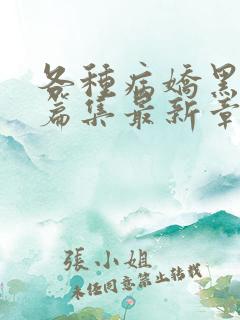 各種病嬌黑
篇集最新章
張小姐
未经同意禁止转载